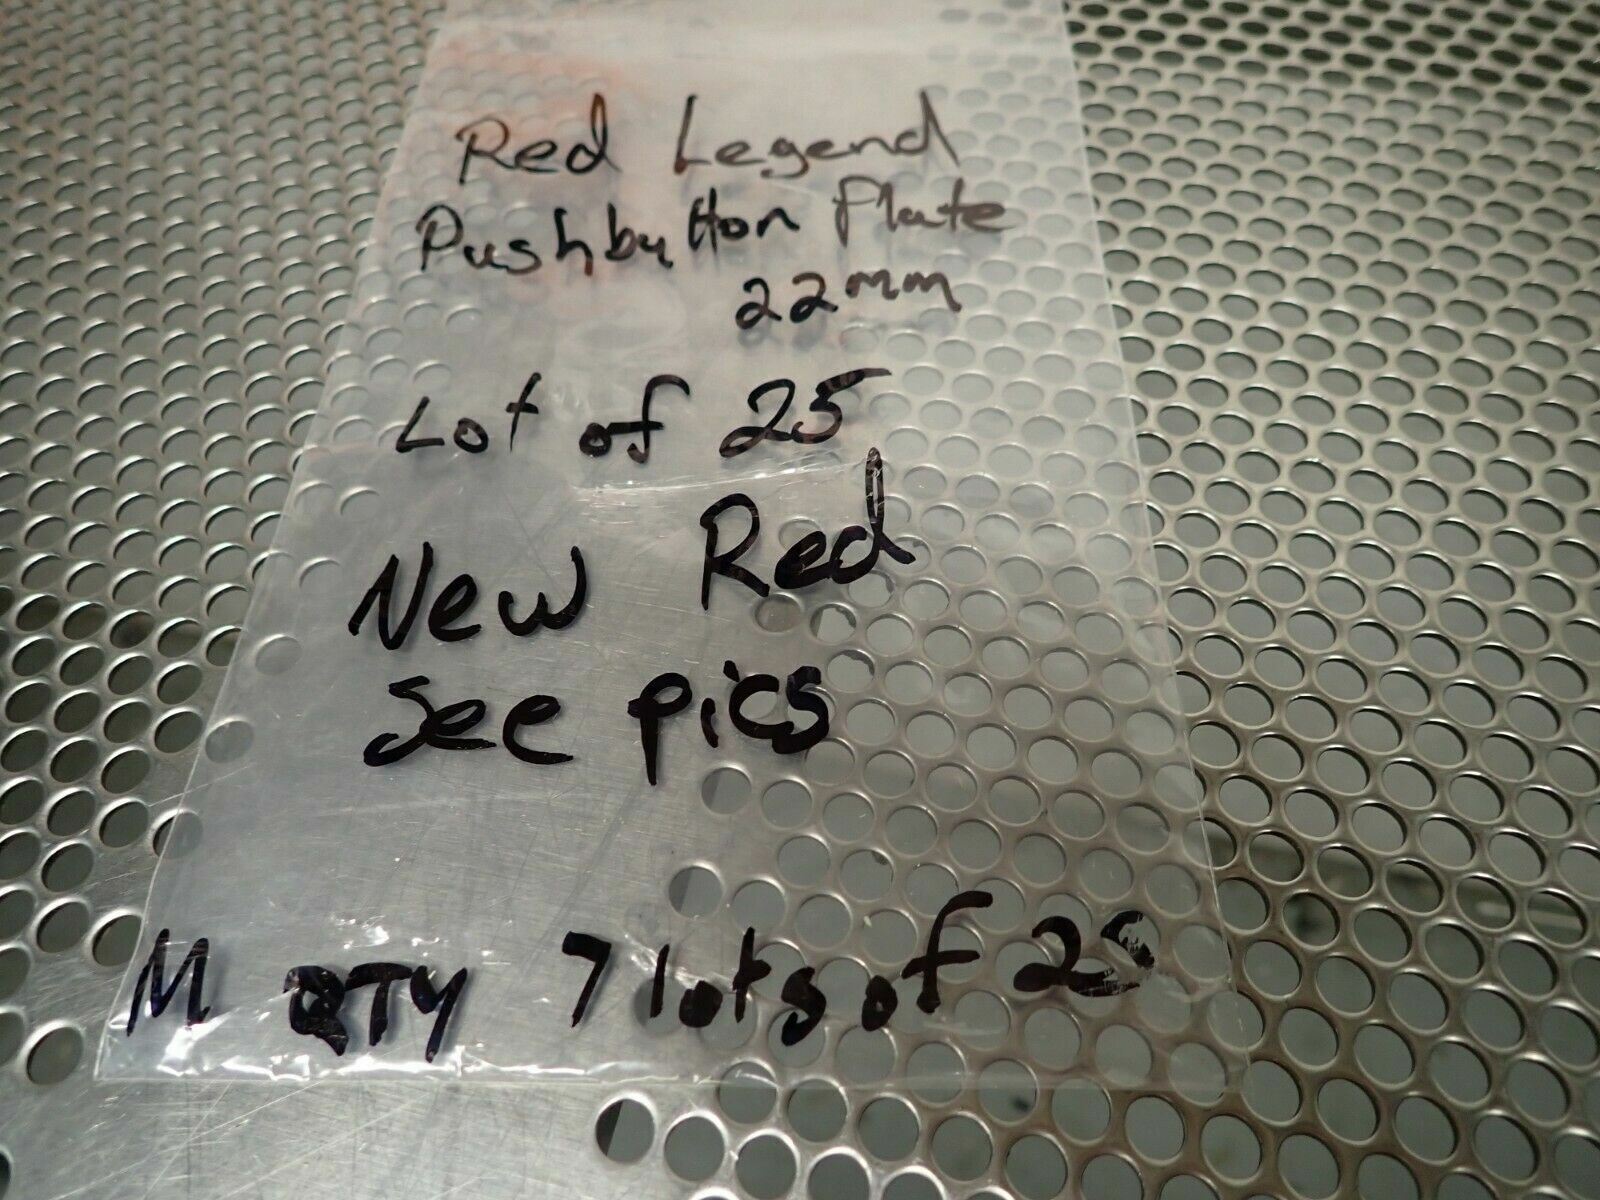 Red Legend
Pushbutton Plate
22mm
Lot of 25
New Red
see pics
M QTY 7 lots of 25